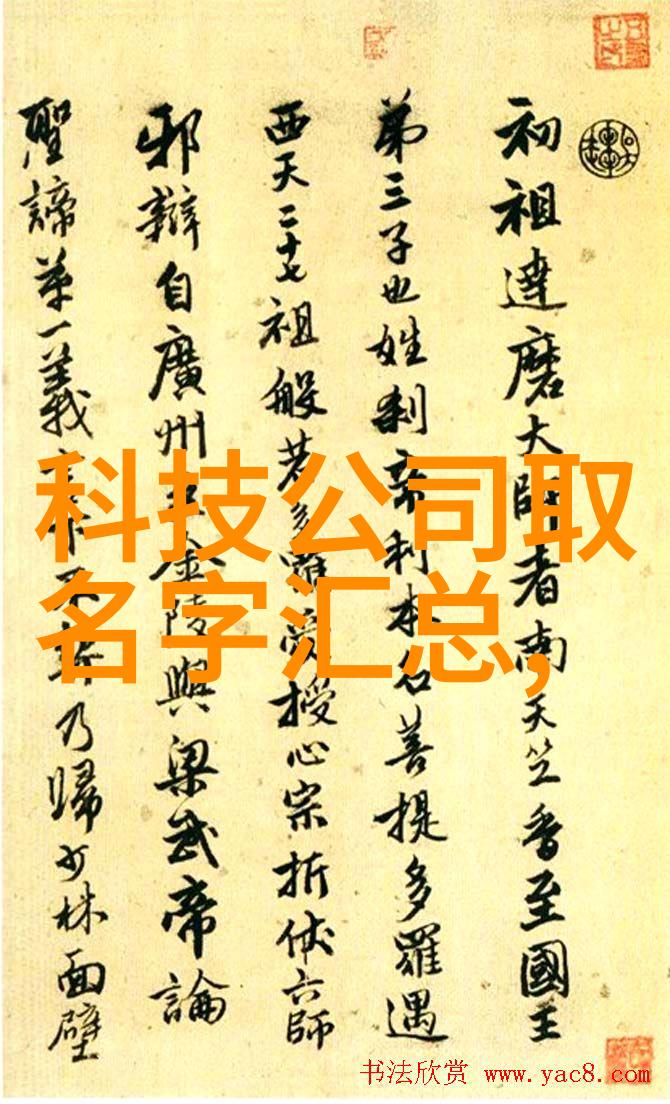 初祖達磨大師者南天竺香至國王
第三子也姓刹帝利本名菩提多羅遇
西天二十七祖般若多羅授心宗折伏六師
邪辯自廣州金陵與梁武帝論
聖諦第一義不契乃歸少林面壁
科技公司取
名字汇总,
书法欣赏 www.yac8.com